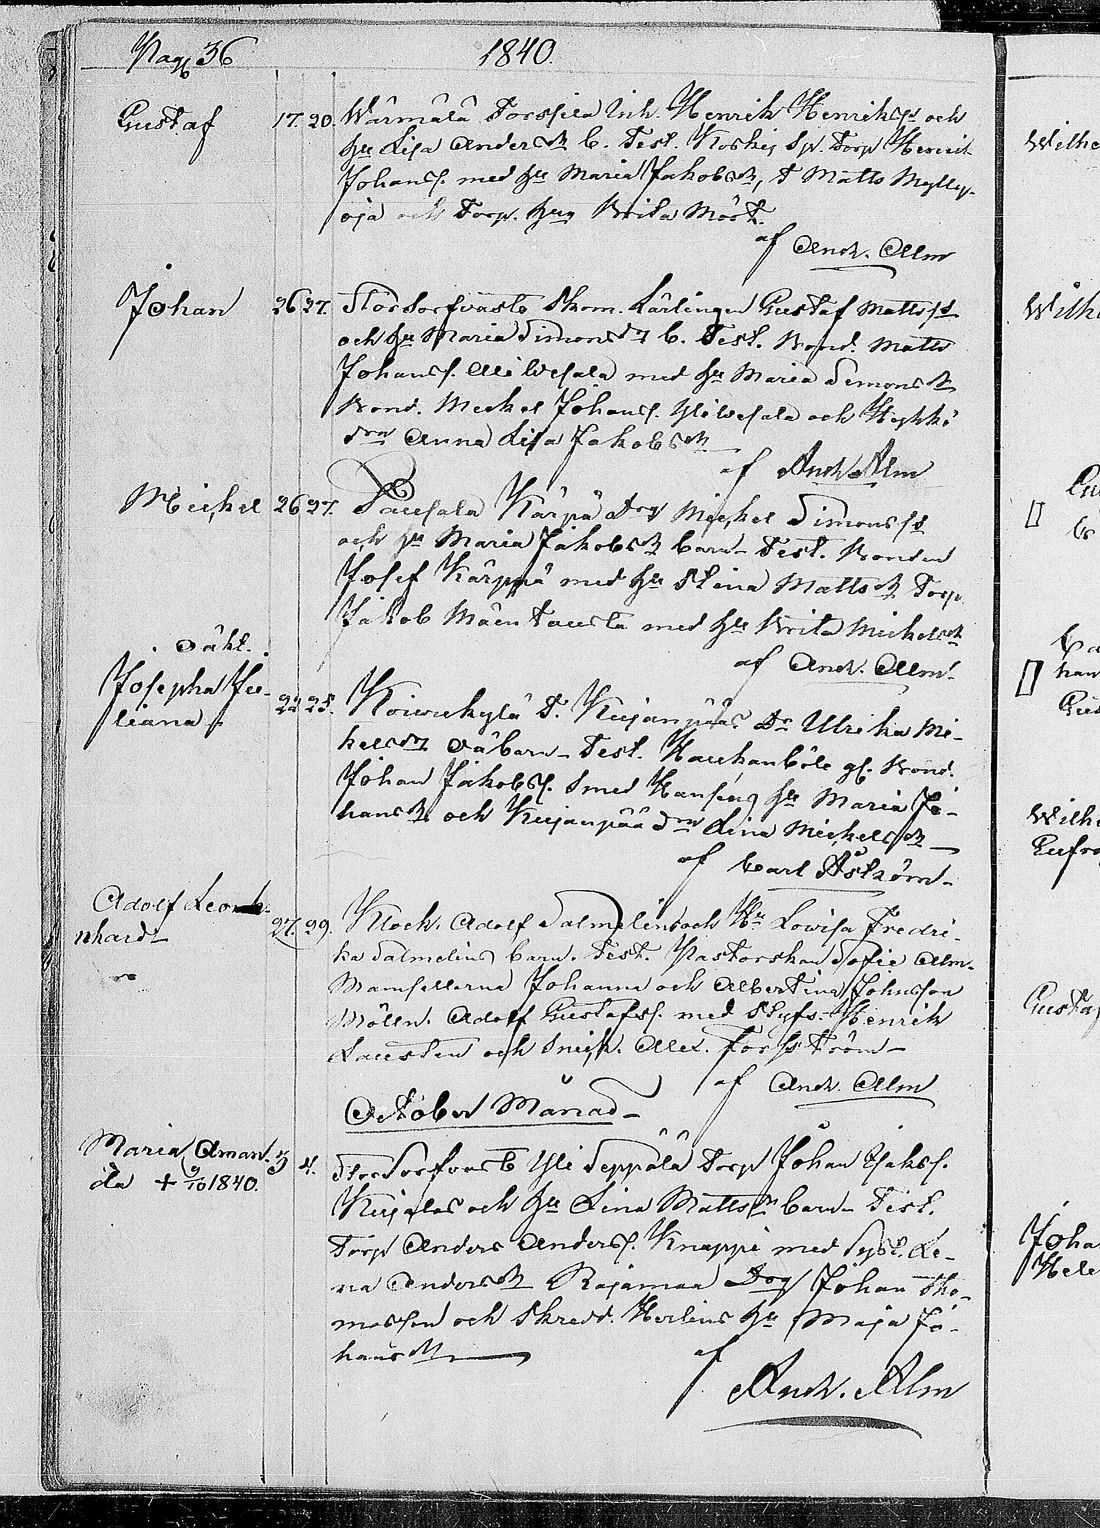 Pag 36 1840.
Gustaf 17. 20. Wärmälä Torpila Inh. Henrik Henrikss. och
hu Lisa Andersdr b. Test. Koskis Sp. Torp Henrik
Johanss. med hu Maria Jakobsdr, D Matts Mylly-
oja och Torp. hus Brita Mört.
af And. Alm
Johan 26 27. Storsorfvasto Skom. Lärlingen Gustaf Mattss
och hu Maria Simonsdr b. Test. Bond. Matts
Johanss. Aliwesala med hu Maria Simonsdr
Bond. Meckel Johans. Yliwesala och Hykkö
drn Anna Lisa Jakobsdr
af And. Alm
Michel 26 27. Paufala Kärpä Drg Michel Simonss
och hu Maria Jakobsdr barn. Test. Bonden
Josef Kärppä med hu Stina Mattsdr Torp.
Jakob Mäentausta med hu Brita Michelsdr
af And. Alm.
oäkt.
Josepha Ju-
liana. 22 25. Koivukylä D. Kujanpääs Dr Ulrika Mi-
kelsdr oä barn. Test. Haukanböle gl. Bond.
Johan Jakobss. Smed Hansens hu Maria Jo-
hansdr och Kujanpää drn Lina Michelsdr
af Carl Åström.
Adolf Leon-
nhard 27. 29. Klock. Adolf Salmelin och Hu Lowisa Fredri-
ka Salmelins barn. Test. Pastorskan Sofie Alm.
Mamsellerna Johanna och Albertina Johnsson
Mölln. Adolf Gustafss. med Styfs. Henrik
Lausten och Snick. Alex. Forsström
af And. Alm
October Månad
Maria Aman-
da + 9/10 1840. 3 4. Storsorfvasto Yli Seppälä Torp Johan Esaiss.
Kujalas och hu Lina Mattsdr barn. Test.
Torp Anders Anderss. Knappi med Syst. Le-
na Andersdr Rajamaa Drg Johan Tho-
masson och Skredd. Herlins hu Maja Jo-
hansdr
af
And. Alm
Wilhe
Wilh
Gu
Ca
han
Gus
Wilh
Eufro
Gustaf
Joha
Hele